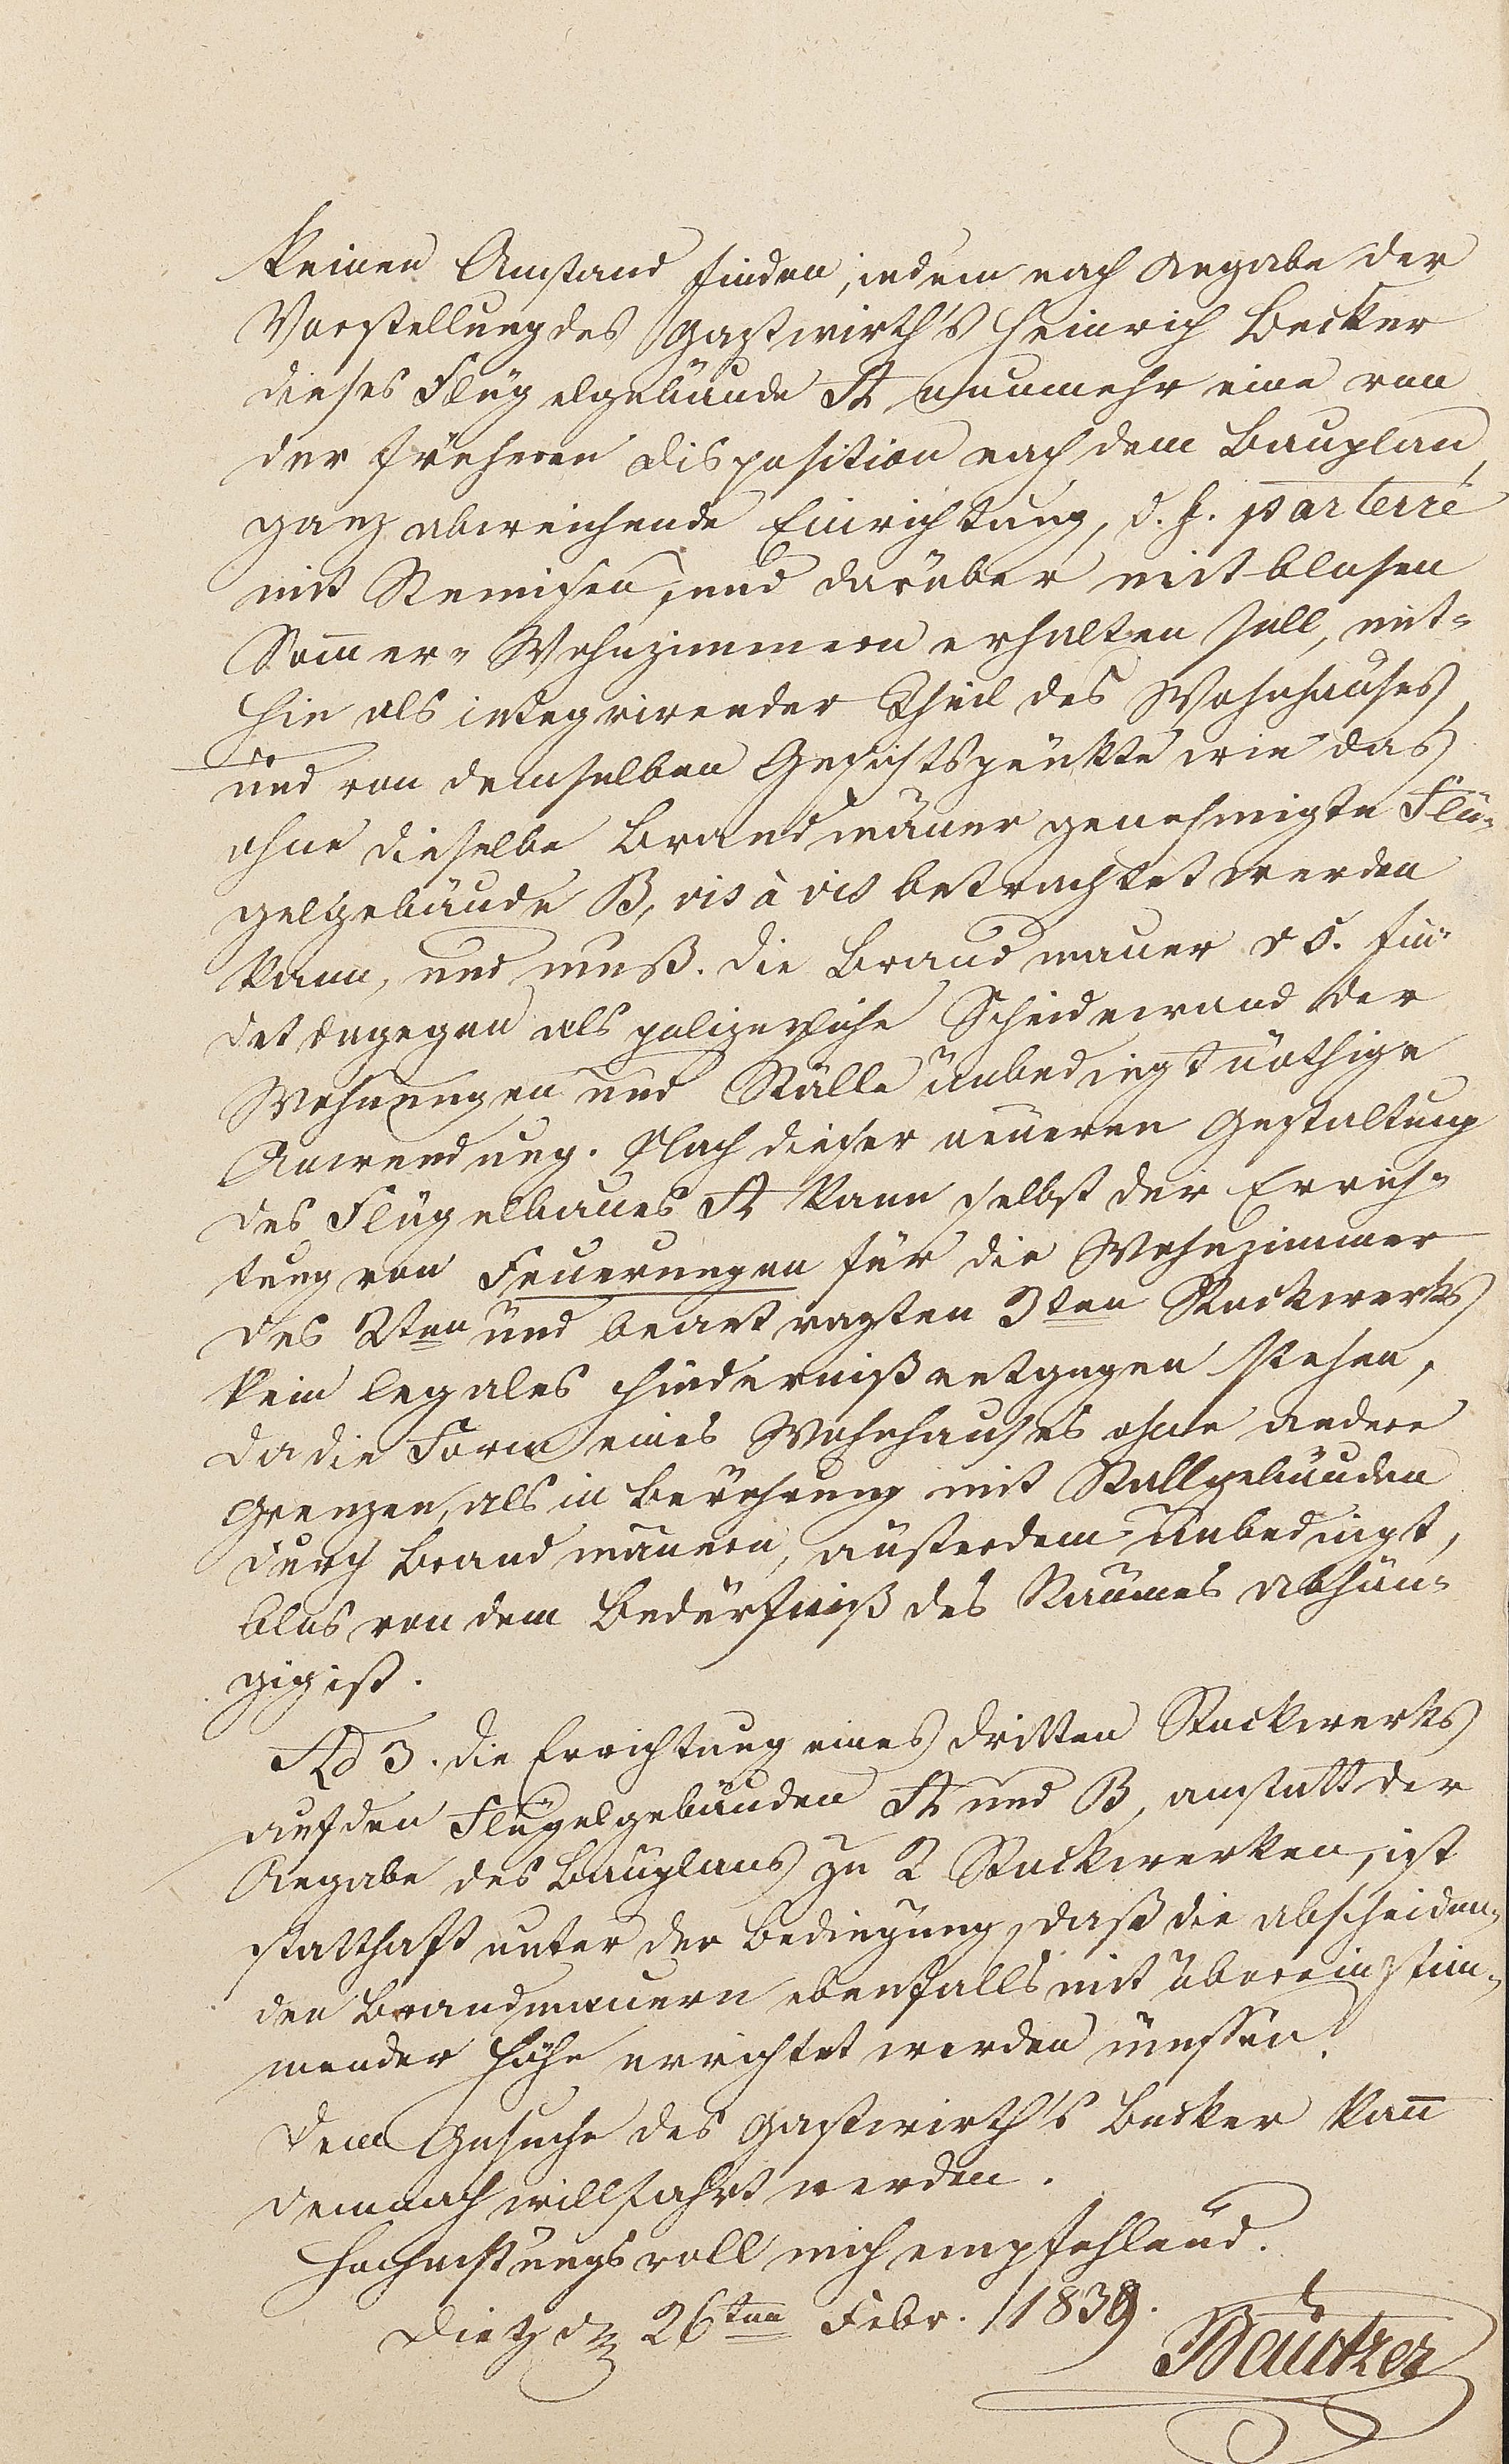 keinen Anstand finden, indem nach Angabe der
Vorstellung des Gastwirth's Heinrich Becker
dieses Flügelgebäude A nunmehr eine von
der früheren Disposition nach dem Bauplan,
ganz abweichende Einrichtung, d. h. parterré
mit Remisen, und darüber mit blosen
Som̄er- Wohnzimmern erhalten soll, mit-
hin als integrirender Theil des Wohnhauses,
und von demselben Gesichtspunkte wie das
ohne dieselbe Brandmauer genehmigte Flü-
gelgebäude B, vis à vis betrachtet werden
kann, und muß. Die Brandmauer fin-
det dagegen als polizeyliche Scheidewand der
Wohnungen und Ställe unbedingt nöthige
Anwendung. Nach dieser neueren Gestaltung
des Flügelbaues A kann selbst der Errich-
tung von Feuerungen für die Wohnzimmer
des 2ten und beantragten 3ten Stockwerks
kein legales Hinderniß entgegen stehen,
da die Form eines Wohnhauses ohne andere
Grenzen, als in Berührung mit Stallgebäuden
durch Brandmauern, außerdem unbedingt,
blos von dem Bedürfniß des Raumes abhän-
gig ist.
Ad 3. Die Errichtung eines dritten Stockwerks
auf den Flügelgebäuden A und B, anstatt der
Angabe des Bauplans zu 2 Stockwerken, ist
statthaft unter der Bedingung, daß die abscheiden-
den Brandmauern ebenfalls mit übereinstim-
mender Höhe errichtet werden müssen.
Dem Gesuche des Gastwirth's Becker kan̄
demnach willfahrt werden.
Hochachtungsvoll mich empfehlend.
Dietz d. 26ten Febr. 1839.